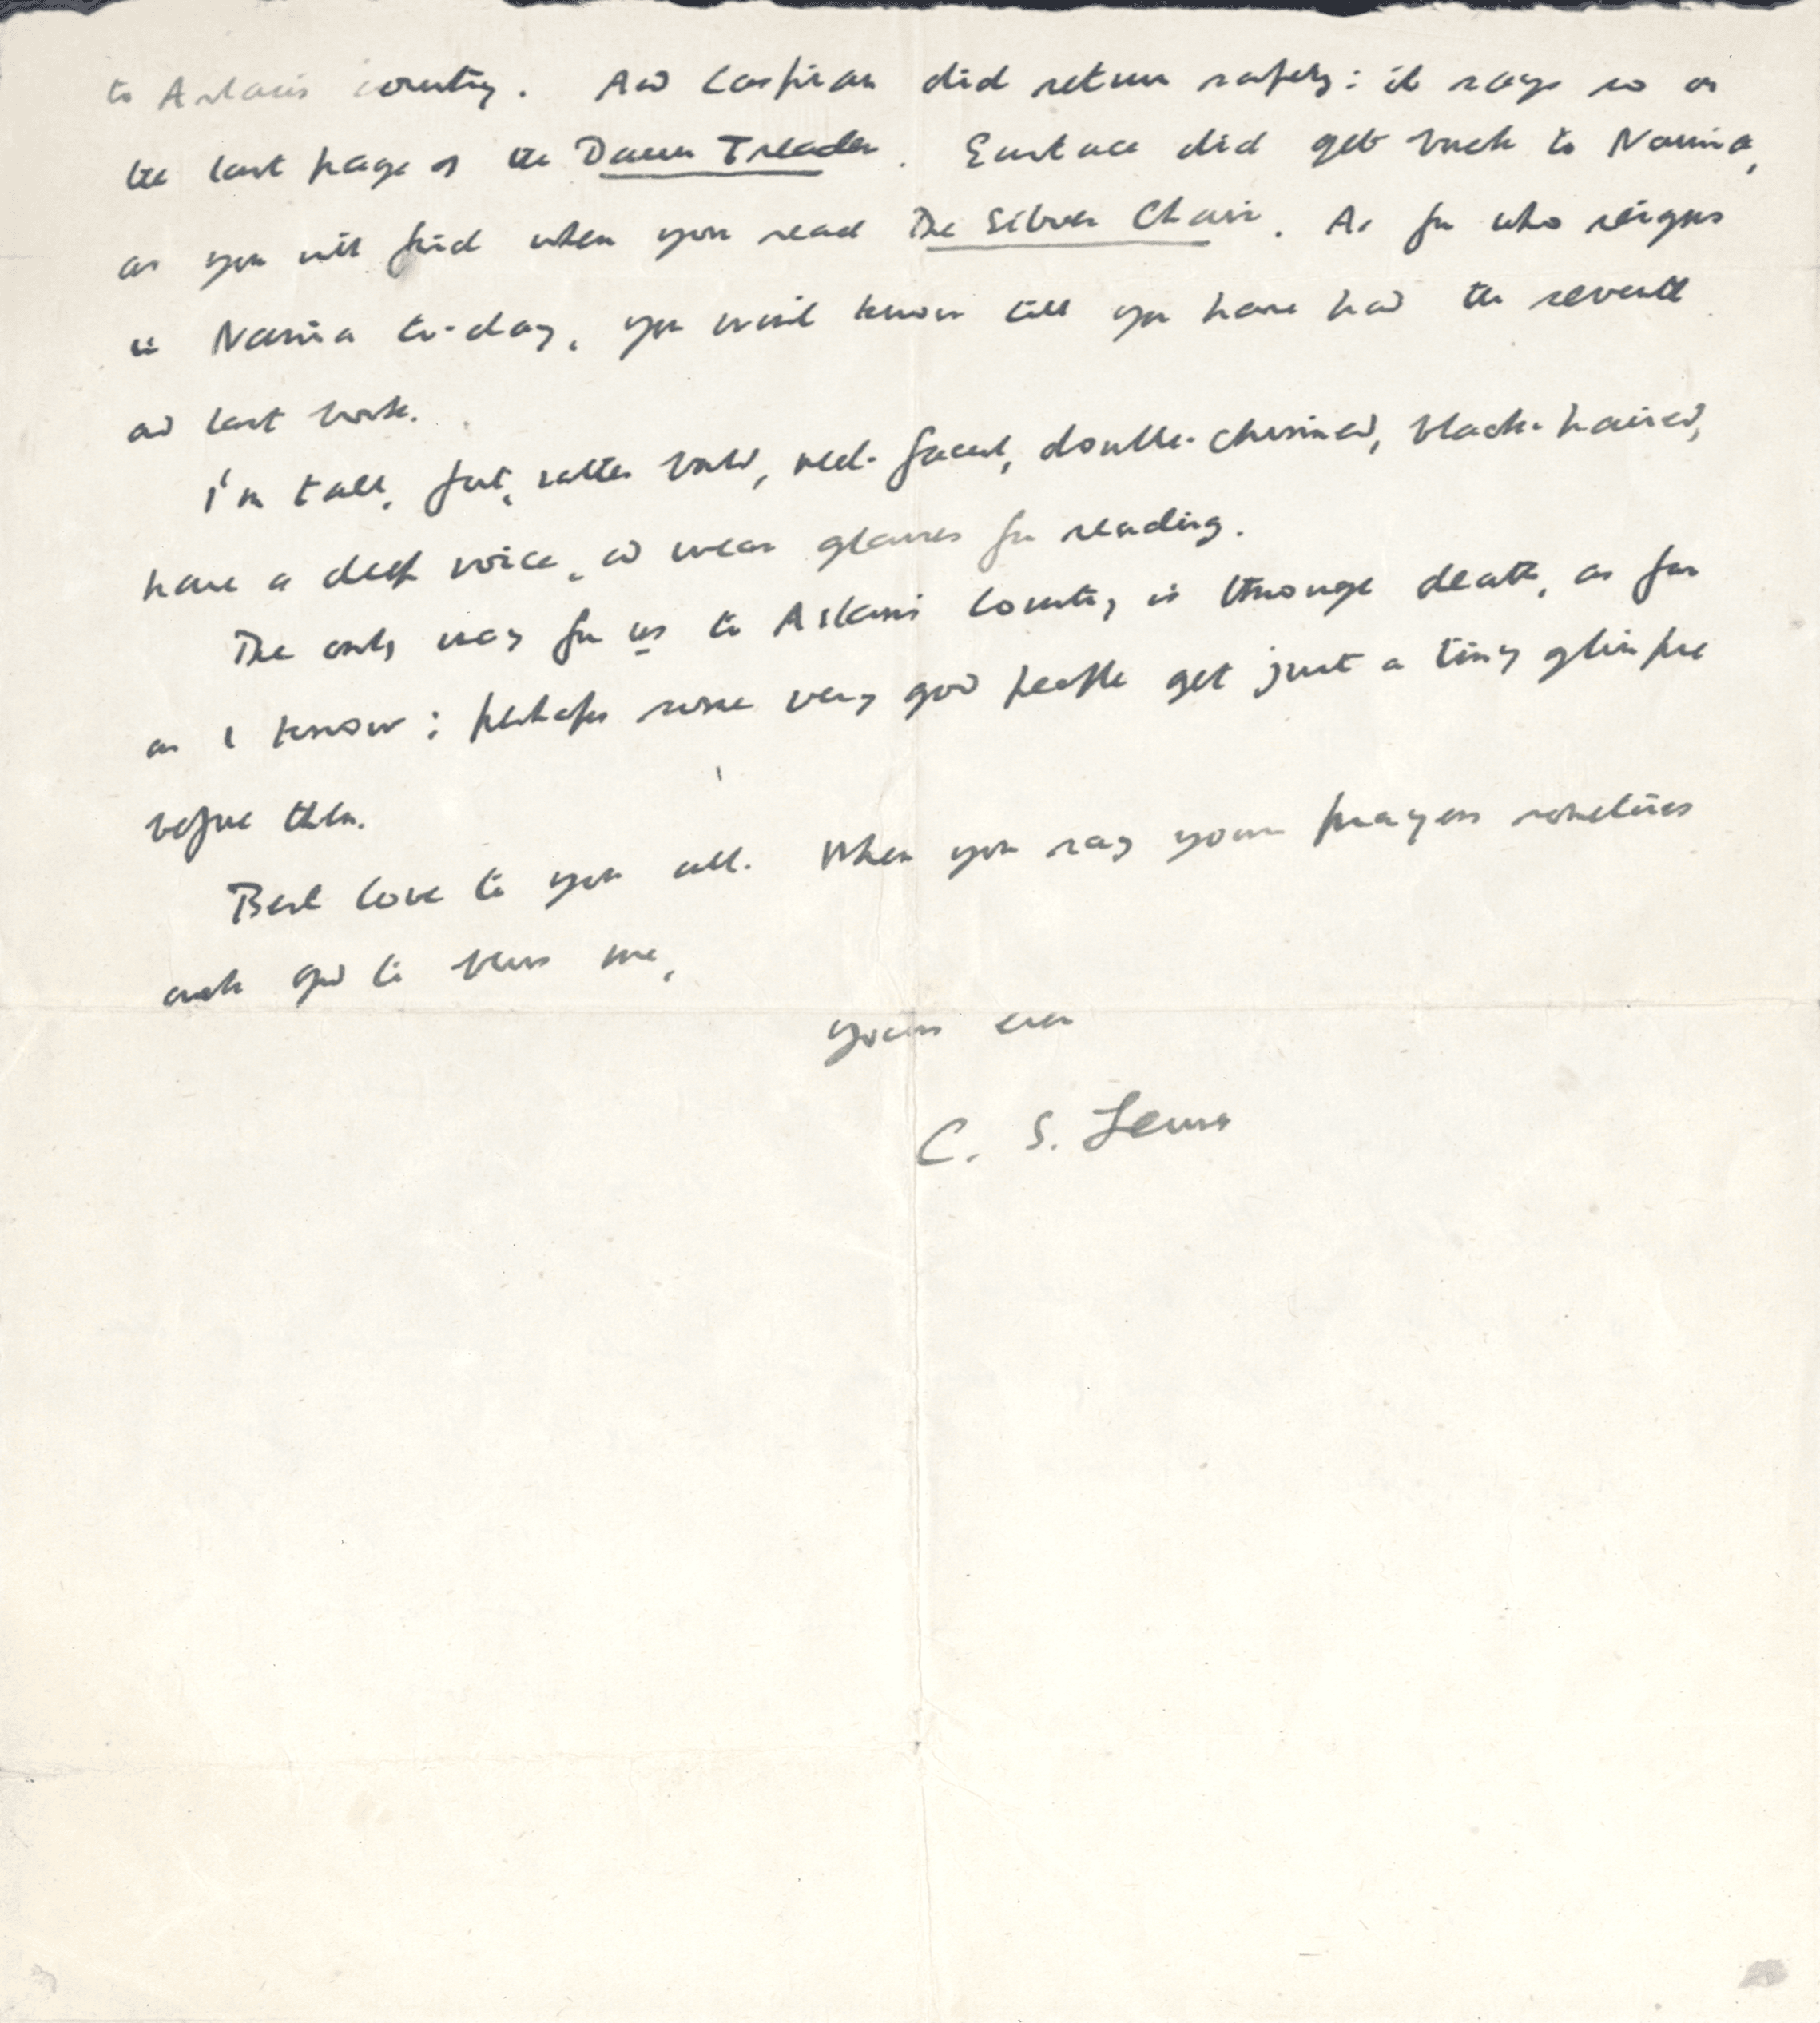 to Aslan's country. And Caspian did return safely: it says so on
the last page of the Dawn Treader. Eustace did get back to Narnia,
as you will find when you read The Silver Chair. As for who reigns
in Narnia to-day, you won't know till you have had the seventh
and last book.
I'm tall, fat, rather bald, red-faced, double-chinned, black-haired,
have a deep voice, and wear glasses for reading.
The only way for us to Aslan's country is through death, as far
as I know: perhaps some very good people get just a tiny glimpse
before then.
Best love to you all. When you say your prayers sometimes
ask God to bless me,
Yours ever
C. S. Lewis